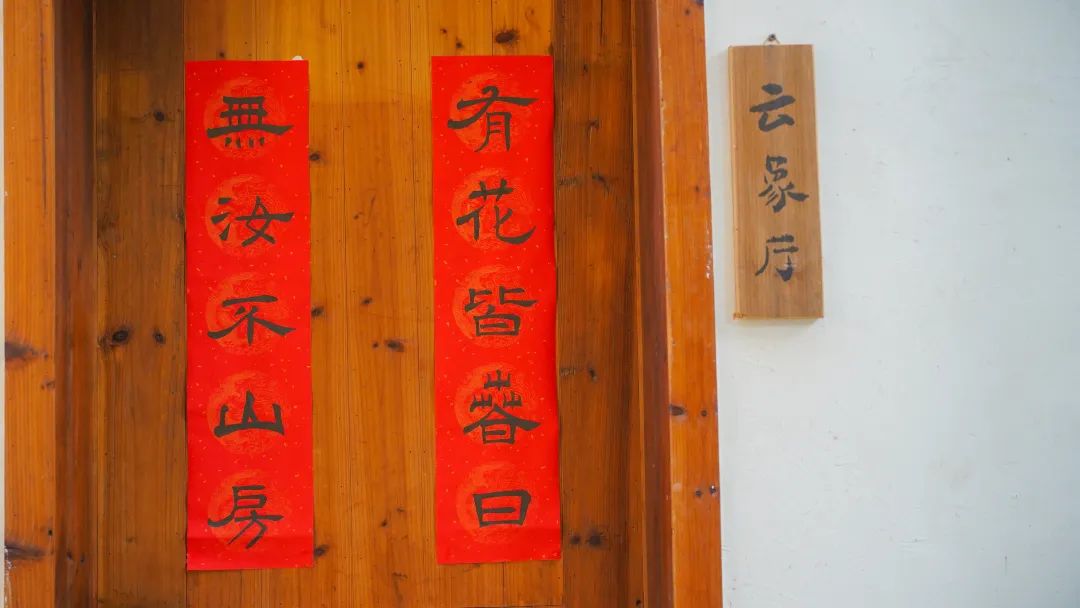 有花皆春日
無汝不山房
云象厅